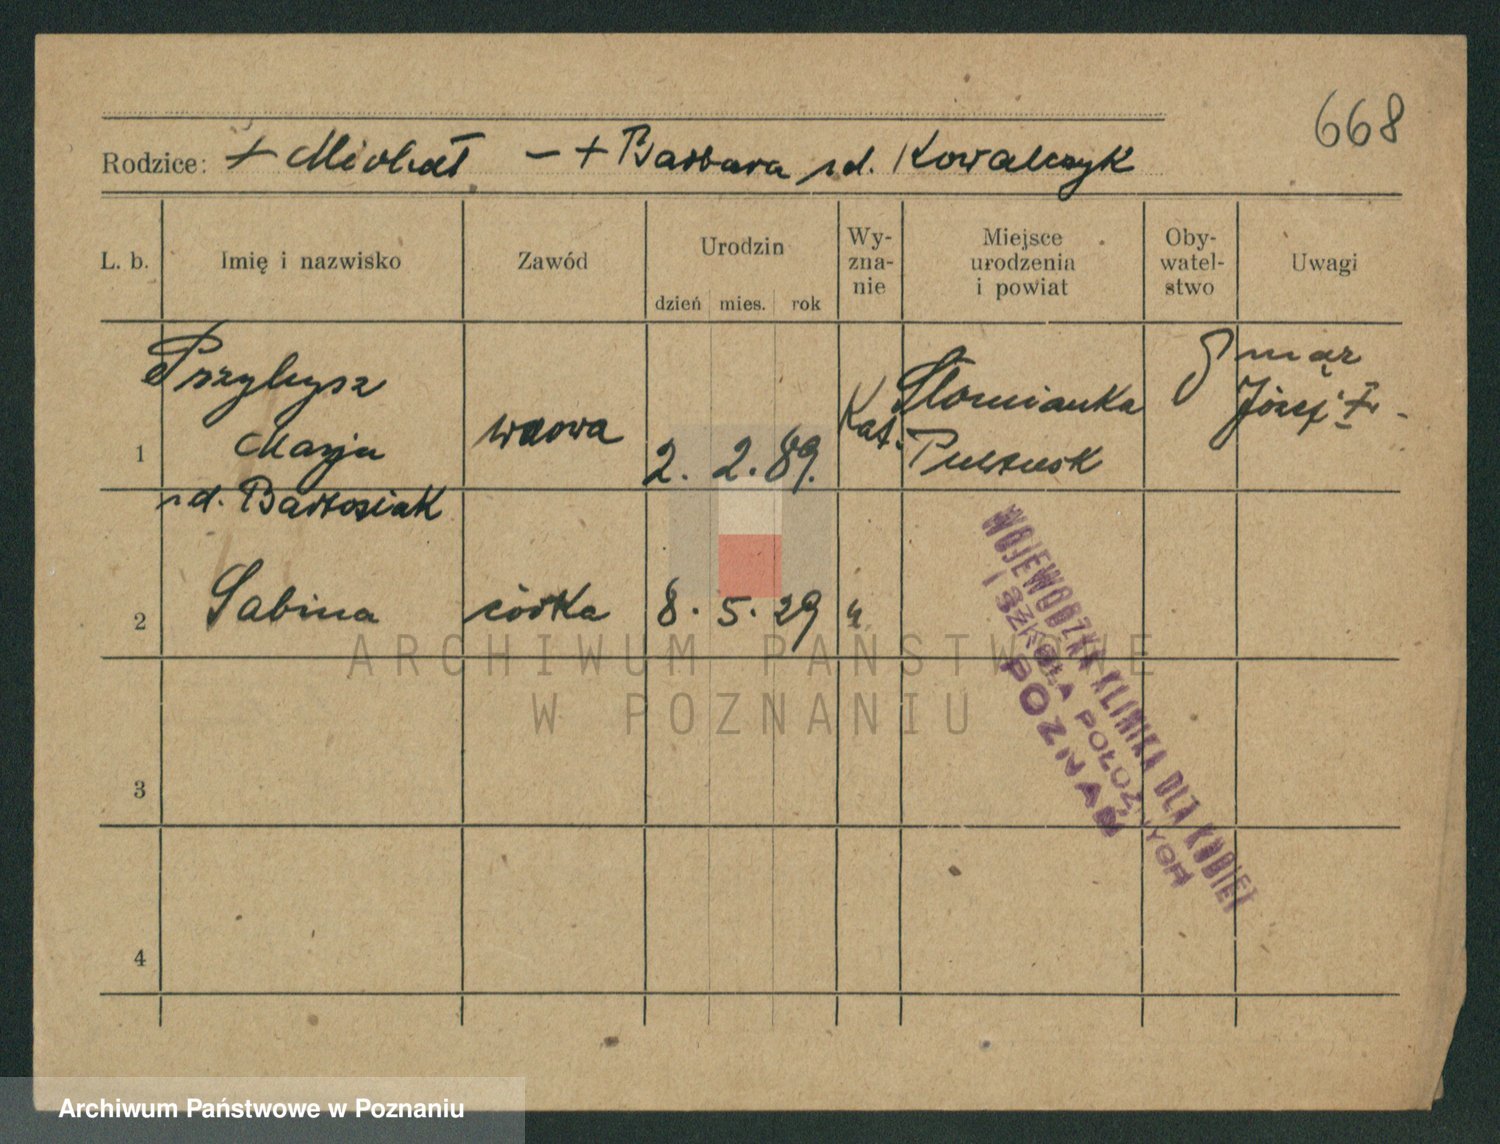 668
Rodzice: + Michał – + Barbara rd. Kowalczyk
L. b. Imię i nazwisko Zawód Urodzin Wy-zna-nie Miejsce urodzenia i powiat Oby-watel-stwo Uwagi
dzień mies. rok
Przybysz
Marja
rd. Bartosiak
1 wdowa 2. 2. 89. Kat. Słomianka
Pułtusk
mąż
Józef
2 Sabina córka 8. 5. 29 "
3
4
WOJEWÓDZKA KLINIKA DLA KOBIET
I SZKOŁA POŁOŻNYCH
POZNAŃ
ARCHIWUM PAŃSTWOWE
W POZNANIU
Archiwum Państwowe w Poznaniu